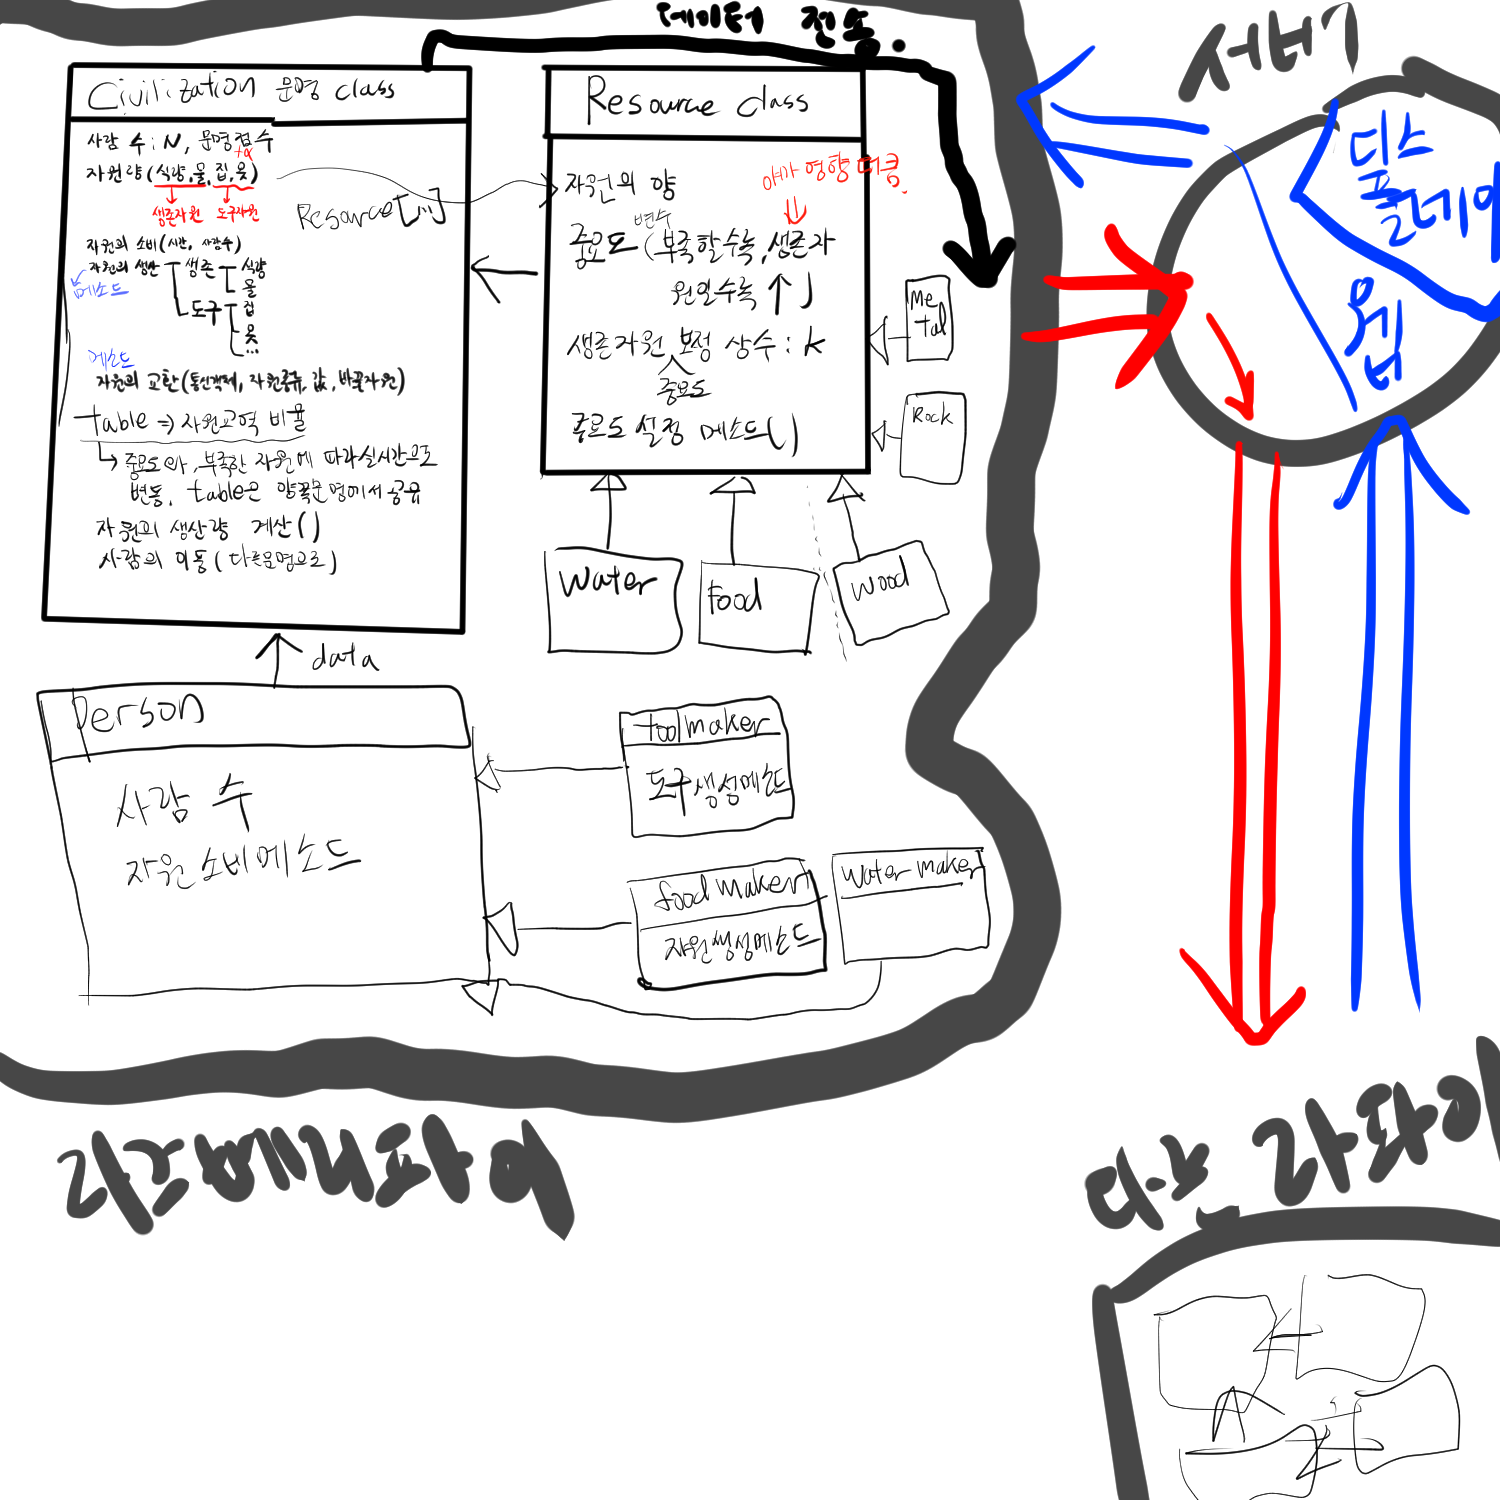 데이터 전송.
서버
Civilization 문명 class
사람 수 : N, 문명점수
+α
자원량(식량,물,집,옷)
생존자원 도구자원
Resource[...]
자원의 소비(시간, 사람수)
자원의 생산 생존 식량
물
메소드
도구 집
옷
...
메소드
자원의 교환(통신객체, 자원종류, 값, 바꿀자원)
table ⇒ 자원교역 비율
중요도와, 부족한 자원에 따라 실시간으로
변동, table은 양쪽문명에서 공유
자원의 생산량 계산()
사람의 이동(다른문명으로)
Resource class
자원의 양
여가 영향 더큼.
변수
중요도(부족할수록, 생존자
원일수록 ↑)
생존자원 보정 상수 : k
중요도
중요도 설정 메소드()
Metal
Rock
Water
Food
Wood
data
Person
사람 수
자원소비메소드
toolmaker
도구생성메소드
foodmaker
자원생성메소드
Water maker
디스플레이
웹
라즈베리파이
다른 라파이